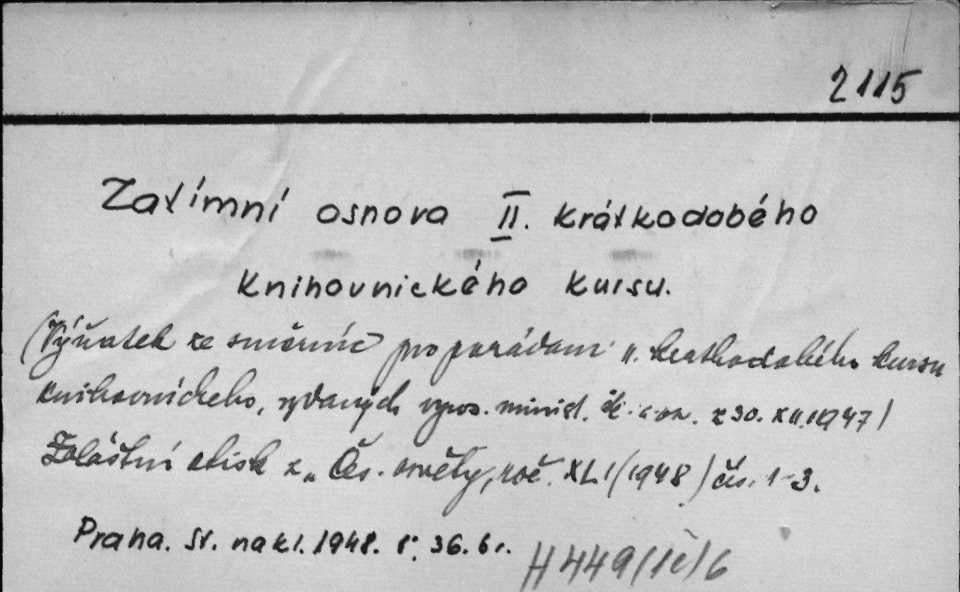 2115
Zatímní osnova II. krátkodobého
knihovnického kursu.
(Výňatek ze směrnic pro pořádání II. krátkodobého kursu
knihovnického, vydaných výnos. minist. šk. z 30. XII. 1947)
Zvláštní otisk z „Čes. osvěty, roč. XLI (1948) čís. 1-3.
Praha. St. nakl. 1948. 8°. 36. br.
H 449/1c/6